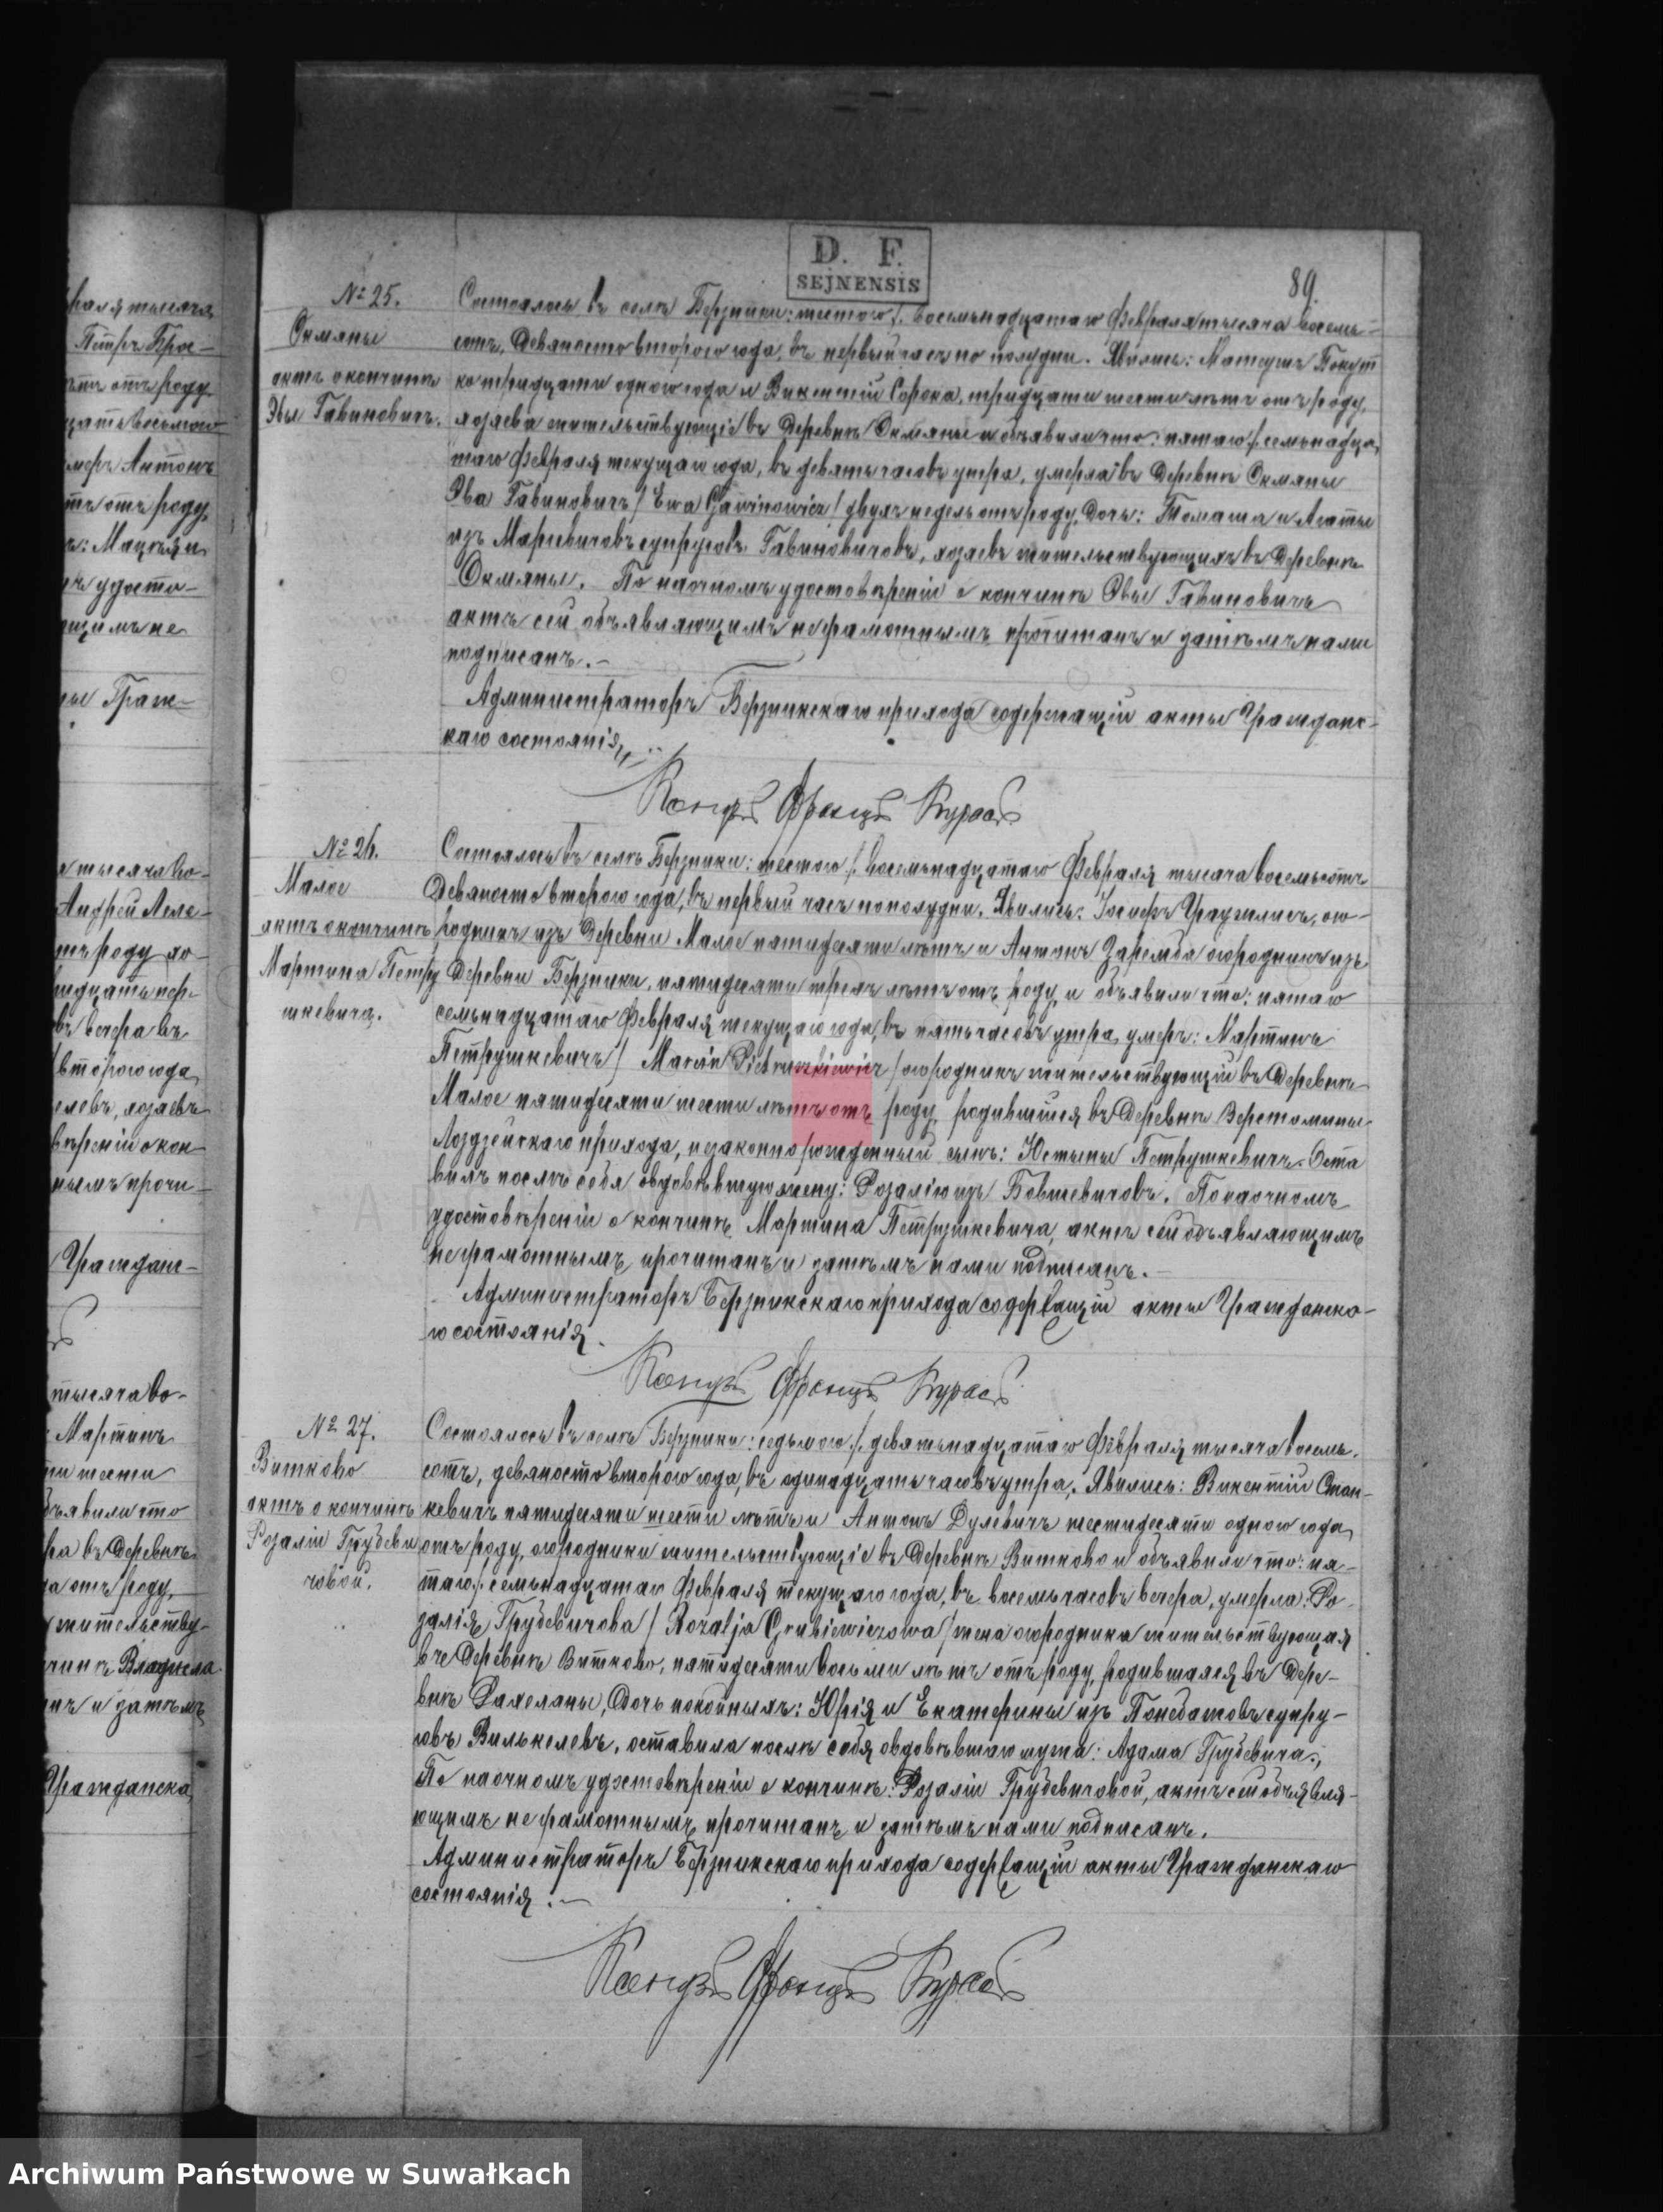 D. F.
SEJNENSIS
89.
№ 25.
Окмяны
актъ о кончинѣ
Эвы Гавиновичъ.
Состоялось въ селѣ Берзники: шестого /. восемьнадцатаго Февраля тысяча восемь-
сотъ, девяносто второго года, въ первый часъ по полудни. Явились: Матеушъ Бокут
ко тридцати одного года и Викентій Сорока, тридцати шести лѣтъ отъ роду,
хозяева жительствующіе въ Деревнѣ Окмяны и объявили что: пятаго /. семьнадца-
таго Февраля текущаго года, въ девять часовъ утра, умерла въ Деревнѣ Окмяны
Эва Гавиновичъ / Ewa Gawinowicz / двухъ недель отъ роду, дочь: Томаша и Агаты
изъ Марцевичовъ супруговъ Гавиновичовъ, хозяевъ жительствующихъ въ Деревнѣ
Окмяны. По наочномъ удостовѣреніи о кончинѣ Эвы Гавиновичъ
актъ сей объявляющимъ неграмотнымъ прочитанъ и затѣмъ нами
подписанъ. –
Администраторъ Берзникскаго прихода содержащій акты Гражданс-
каго состоянія
Ксендзъ Францъ Курасъ
№ 26.
Малое
актъ о кончинѣ
Мартина Петру
шкевича.
Состоялось въ селѣ Берзники: шестого /. восемьнадцатаго Февраля тысяча восемьсотъ
девяносто второго года, въ первый часъ пополудни. Явились: Іосифъ Граужлисъ, ого-
родникъ изъ Деревни Малое пятидесяти лѣтъ и Антонъ Заремба огородникъ изъ
Деревни Берзники, пятидесяти трехъ лѣтъ отъ роду, и объявили что: пятаго
семьнадцатаго Февраля текущаго года, въ пять часовъ утра, умеръ: Мартинъ
Петрушкевичъ / Marcin Pietruszkiewicz / огородникъ жительствующій въ Деревнѣ
Малое пятидесяти шести лѣтъ отъ роду, родившійся въ Деревнѣ Верстомины
Лоздзейскаго прихода, незаконно рожденный сынъ: Юстыны Петрушкевичъ. Оста
вилъ послѣ себя овдовѣвшую жену: Розалію изъ Бовшевичовъ. По наочномъ
удостовѣреніи о кончинѣ Мартина Петрушкевича, актъ сей объявляющимъ
неграмотнымъ прочитанъ и затѣмъ нами подписанъ. –
Администраторъ Берзникскаго прихода содержащій акты Гражданска-
го состоянія.
Ксендзъ Францъ Курасъ
№ 27.
Витково
актъ о кончинѣ
Розаліи Грубеви
човой.
Состоялось въ селѣ Берзники: седьмого /. девятьнадцатаго Февраля тысяча восемь-
сотъ, девяносто второго года, въ одинадцать часовъ утра. Явились: Викентій Стан-
кевичъ пятидесяти шести лѣтъ и Антонъ Дулевичъ шестидесяти одного года
отъ роду, огородники жительствующіе въ Деревнѣ Витково и объявили что: пя-
таго /. семьнадцатаго Февраля текущаго года, въ восемь часовъ вечера, умерла: Ро-
залія Грубевичова / Rozalja Grubiewiczowa / жена огородника жительствующая
въ Деревнѣ Витково, пятидесяти восьми лѣтъ отъ роду, родившаяся въ Дере-
внѣ Рахеланы, Дочь покойныхъ: Юрія и Екатерины изъ Понебатовъ супру-
говъ Вилькелевъ, оставила послѣ себя овдовѣвшаго мужа: Адама Грубевича.
По наочномъ удостовѣреніи о кончинѣ: Розаліи Грубевичовой, актъ сей объявля-
ющимъ неграмотнымъ прочитанъ и затѣмъ нами подписанъ.
Администраторъ Берзникскаго прихода содержащій акты Гражданскаго
состоянія. –
Ксендзъ Францъ Курасъ
Archiwum Państwowe w Suwałkach